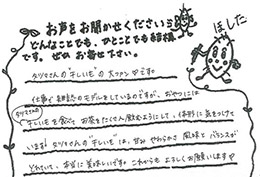 お声をお聞かせください
ほした
どんなことでも、ひとことでも結構
です。ぜひ お寄せ下さい。
タツマさんの"干しいも"の 大ファンです
仕事で 時々のモデルをしているのですが、おやつには
"干しいも"を食べて お茶をたくさん飲むようにして、体形に気をつけて
います! タツマさんの"干しいも"は、甘み やわらかさ 風味と バランスが
とれていて、本当に美味しいです。これからも よろしくお願います